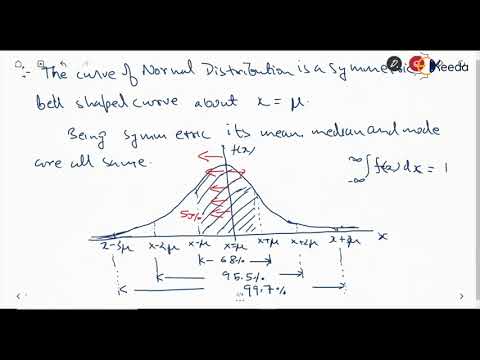 :- The curve of Normal Distribution is a Symmetric
bell shaped curve about x = μ.
Being symmetric its mean, median and mode
are all same.
f(x)
∞
∫ f(x) dx = 1
-∞
50%
x-3μ x-2μ x-μ x=μ x+μ x+2μ x+3μ x
68%
95.5%
99.7%
Keeda